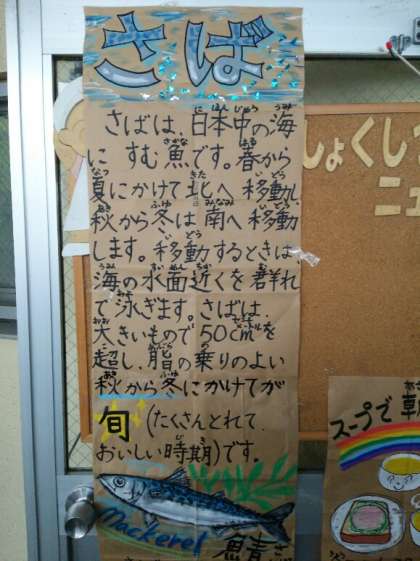 さば
さばは、日本中の海
に すむ魚です。春から
夏にかけて北へ移動し
秋から冬は南へ移動
します。移動するときは
海の水面近くを群れ
で泳ぎます。さばは、
大きいもので50cmを
超し、脂の乗りのよい
秋から冬にかけてが
旬(たくさんとれて、
おいしい時期)です。
Mackerel
鯖
しょくし
ニュ
スープで